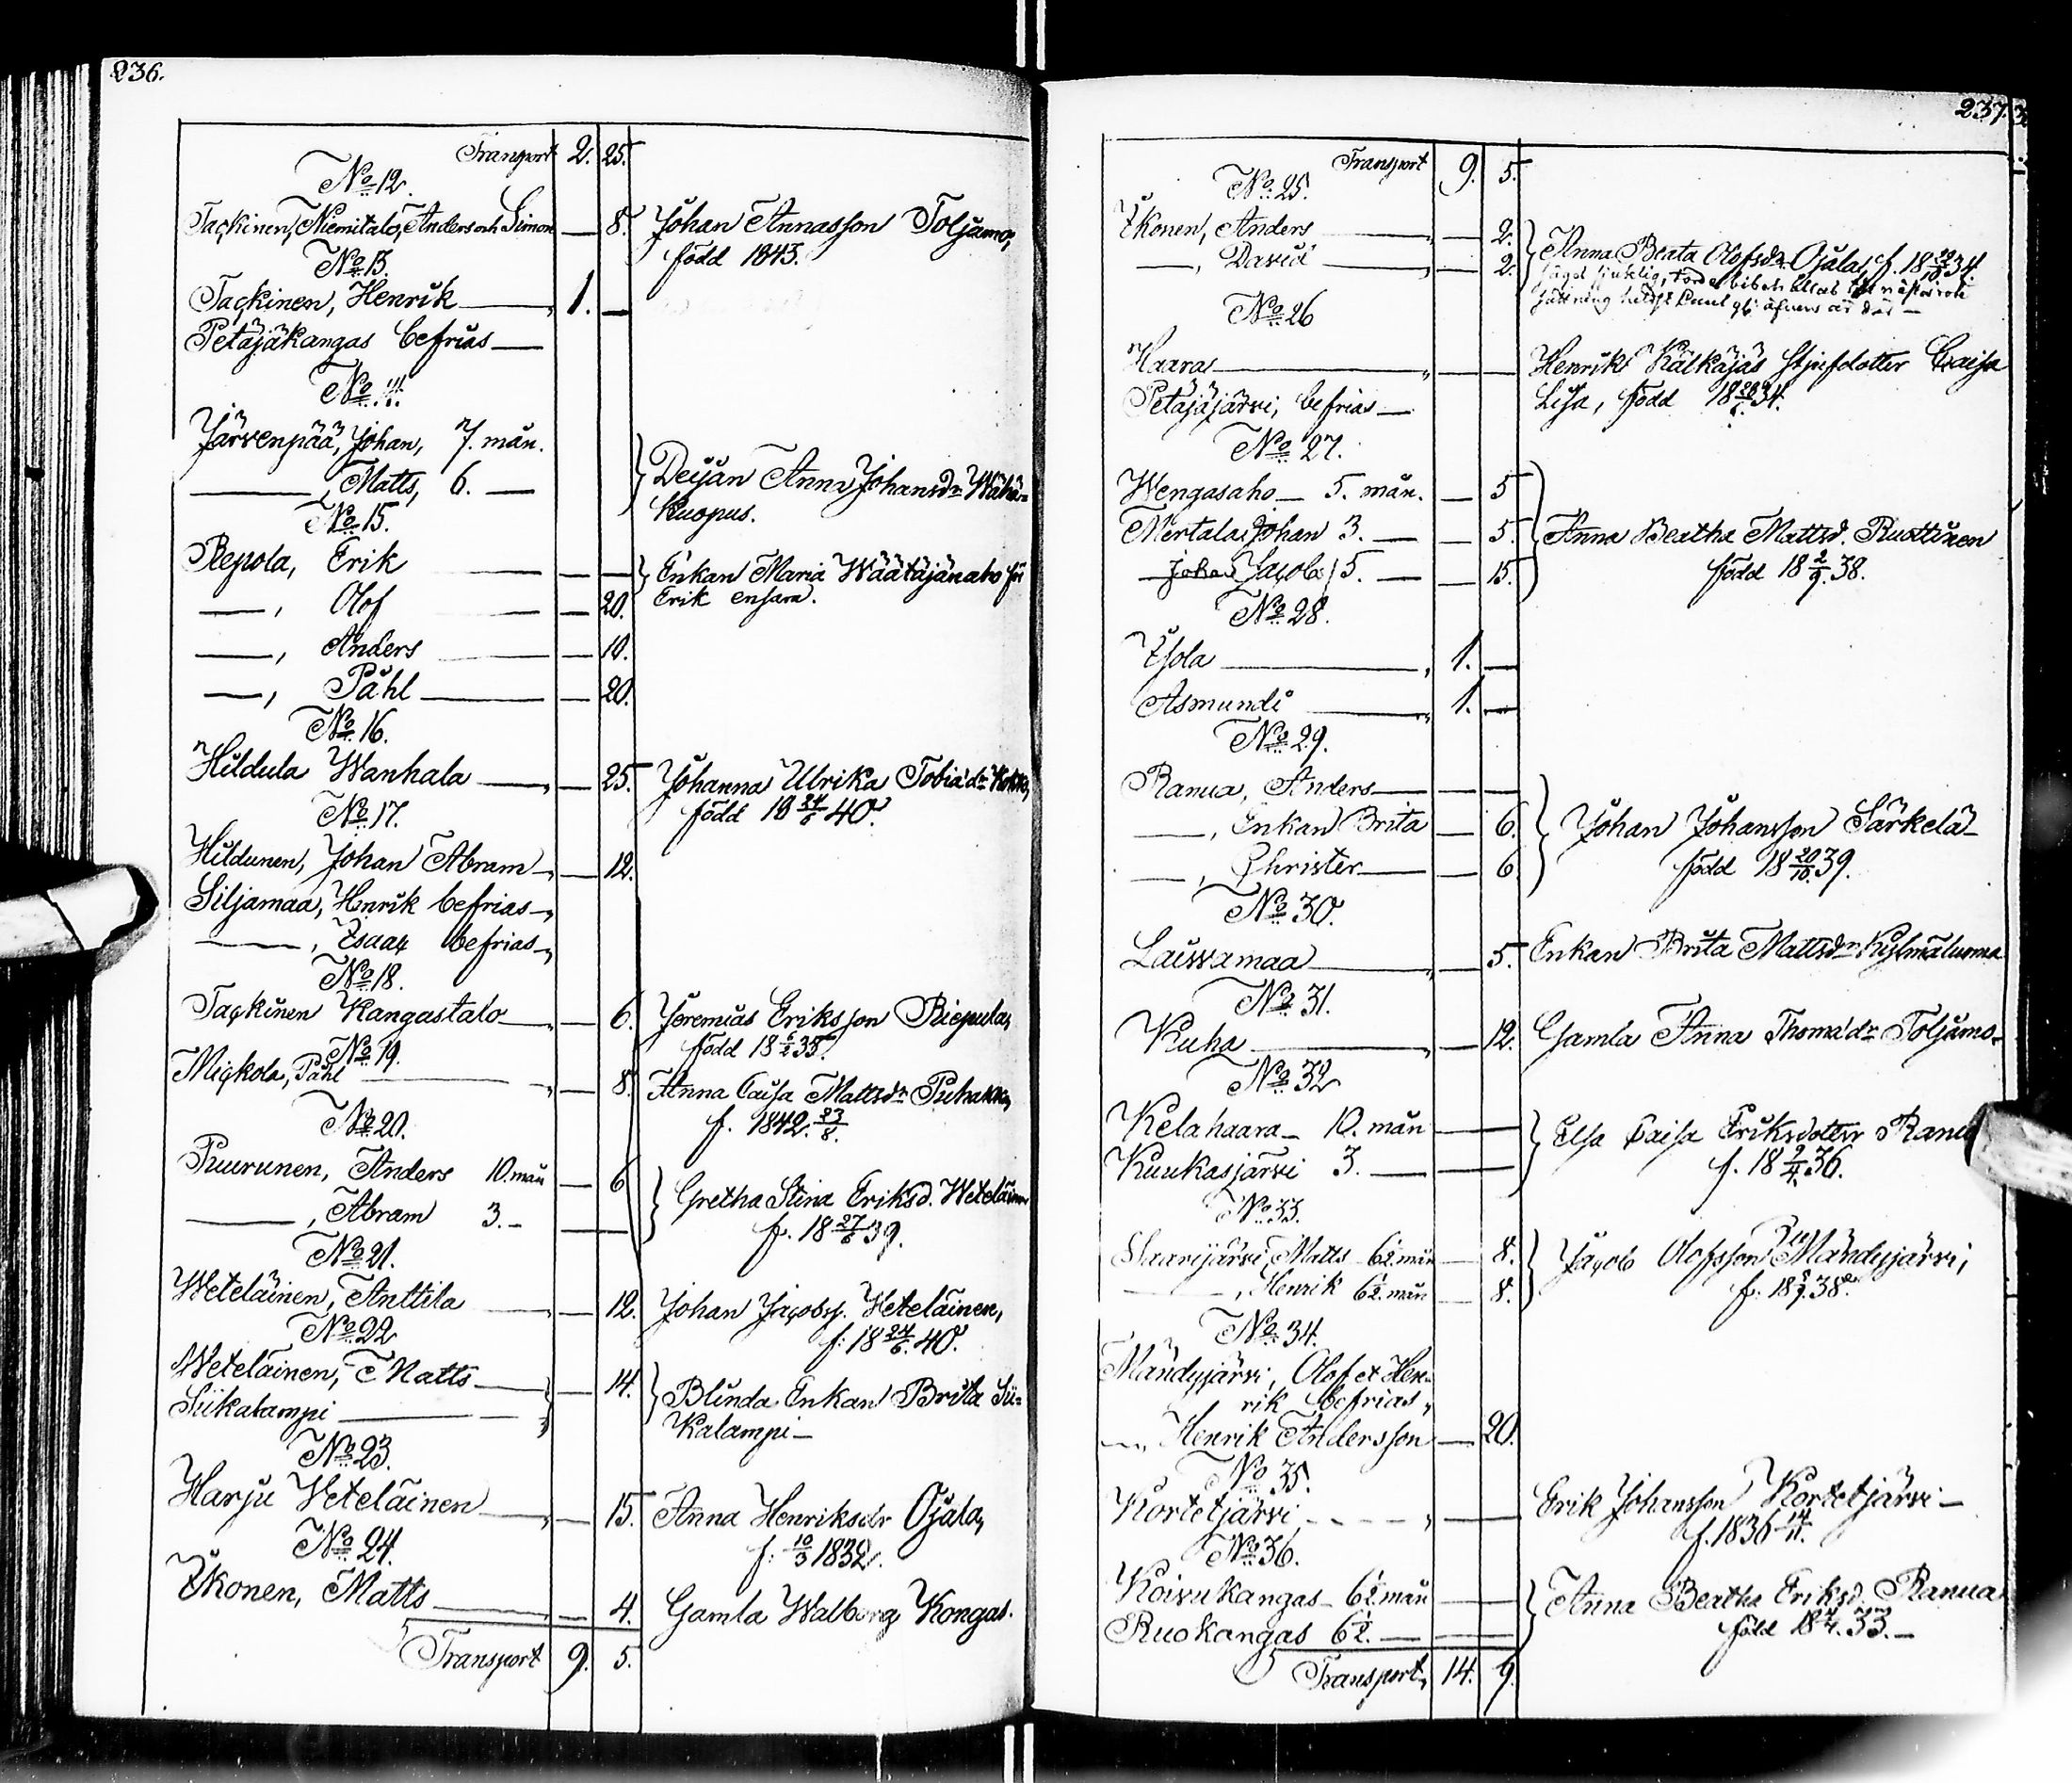 236.
Transport 2. 25.
No 12.
Tackinen, Niemitalo, Anders och Simon — 8. Johan Annasson Toljamo,
född 1843.
No 13.
Tackinen, Henrik — 1. —
Petäjäkangas befrias —
No 14.
Järvenpää, Johan, 7. mån.
—, Matts, 6. — } Deijan Anna Johansdr Wähä-
Kuopus.
No 15.
Repola, Erik — — } Enkan Maria Wäätäjänaho för
—, Olof — 20. Erik ensam.
—, Anders — 10.
—, Påhl — 20.
No 16.
Hildula Wanhala — 25. Johanna Ulrika Tobiædr Kokko,
född 18 24/6 40.
No 17.
Hildunen, Johan Abram — 12.
Siljamaa, Henrik befrias —
—, Isaac befrias —
No 18.
Tackinen Kangastalo — 6. Jeremias Eriksson Riepula,
född 18 6/2 35.
No 19.
Mickola, Påhl — 8. Anna Caisa Mattsdr Puhakka,
f. 1842. 23/8.
No 20.
Puurunen, Anders 10. mån — 6 } Gretha Stina Eriksd. Weteläinen
—, Abram 3. — — f. 18 27/6 39.
No 21.
Weteläinen, Anttila — 12. Johan Jacobss. Weteläinen,
f: 18 24/6. 40.
No 22
Weteläinen, Matts — } — 14. } Blinda Enkan Brita Sii-
Siikalampi — kalampi —
No 23.
Harju Weteläinen — 15. Anna Henriksdr Ojala,
f: 10/3 1832.
No 24.
Ikonen, Matts — 4. Gamla Walborg Kongas.
Transport 9. 5.
237.
Transport 9. 5.
No 25.
Ikonen, Anders — 2. } Anna Beata Olofsdr Ojala, f. 18 22/10 34.
—, David — 2.
No 26
Haara — — Henrik Kälkäjäs styfdotter Caisa
Petäjäjärvi, befrias — Lisa, född 34.
No 27.
Wengasaho — 5. mån. — 5 }
Mertala, Johan 3. — — 5. Anna Beatha Mattsd. Ruottinen
— Jacob 5. — — 15. född 18 2/9. 38.
No 28.
Isola — 1. —
Asmundi — 1. —
No 29.
Ranua, Anders — —
—, Enkan Brita — 6. } Johan Johansson Särkelä —
—, Christer — 6 född 18 20/10. 39.
No 30.
Laivamaa — 5. Enkan Brita Mattsdr Kylmäluoma
No 31.
Kuha — 12. Gamla Anna Thomædr Toljamo.
No 32
Kelahaara — 10. mån — } Elsa Caisa Eriksdotter Ranua
Kuukasjärvi 3. — — f. 18 9/4. 36.
No 33.
Saarijärvi, Matts 6½. mån — 8. } Jacob Olofsson Mändyjärvi,
—, Henrik 6½. mån — 8. 38.
No 34.
Mändyjärvi, Olof et Hen-
rik befrias,
—, Henrik Andersson — 20.
No 35.
Kortetjärvi — — Erik Johansson Kortetjärvi —
f. 1836 14/11.
No 36.
Koivukangas — 6½. mån — } Anna Beatha Eriksd. Ranua
Ruokangas 6½. — — född 33. —
Transport, 14. 9.